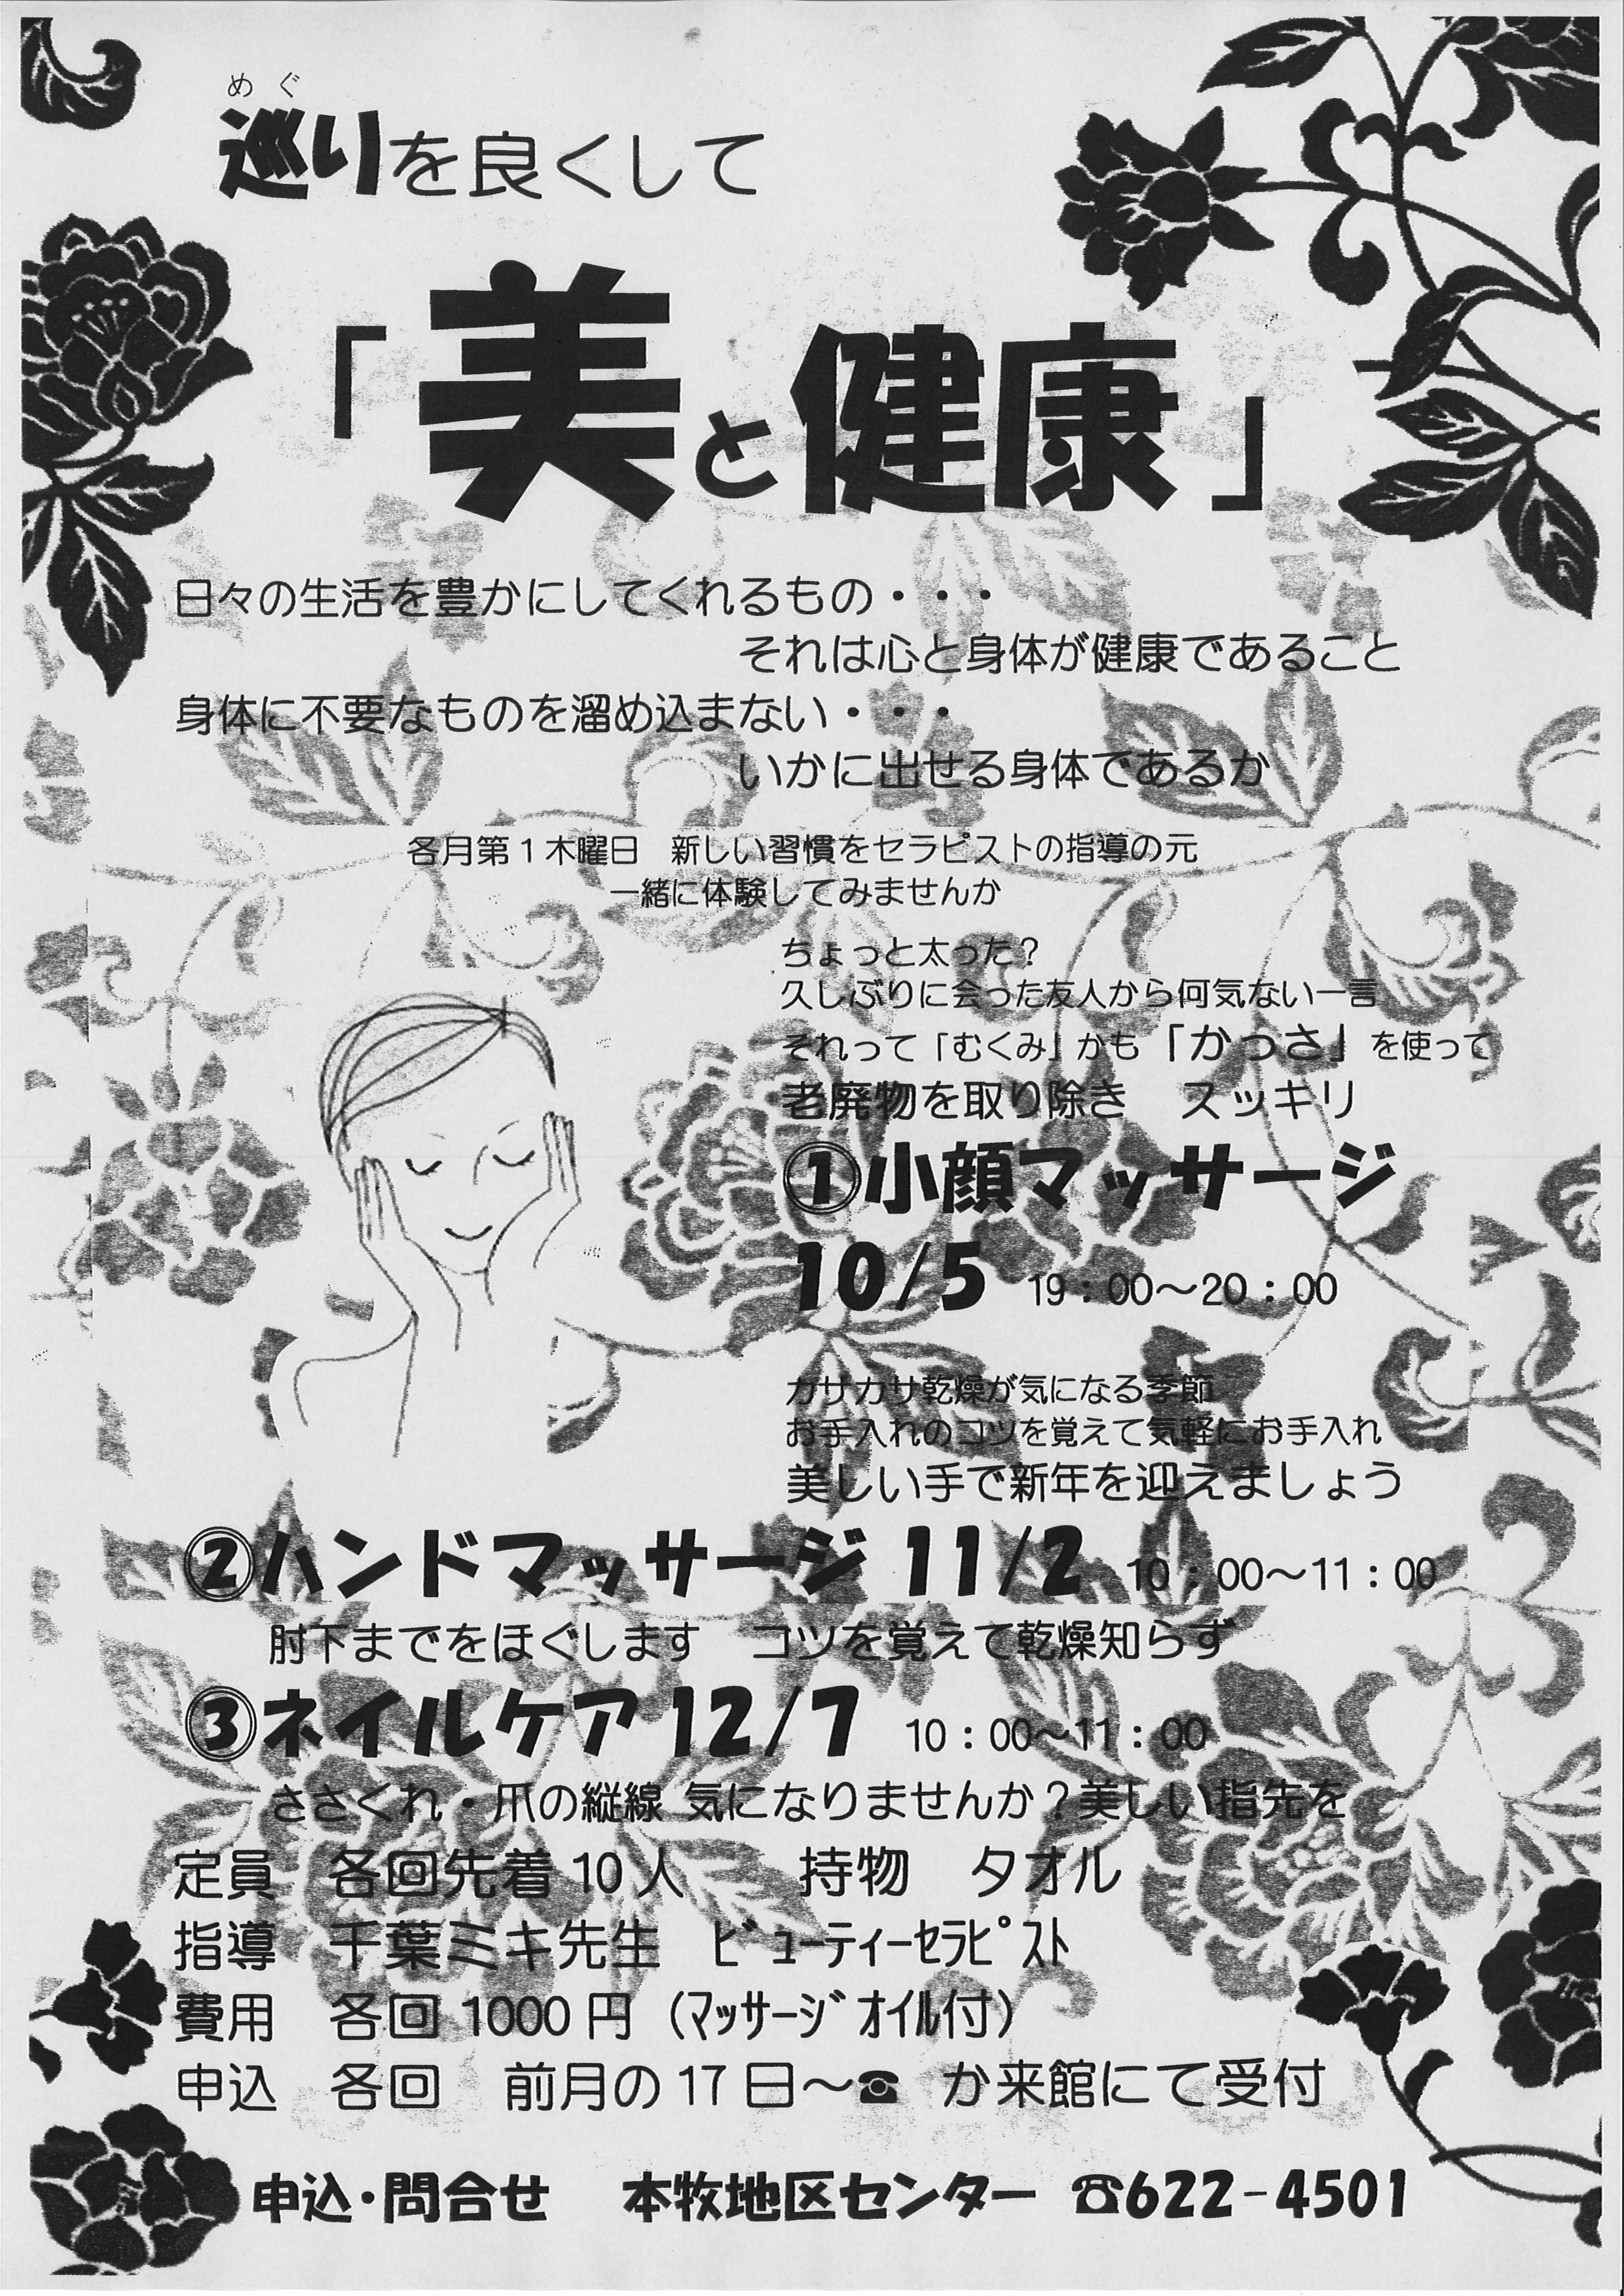 めぐ
巡りを良くして
「美と健康」
日々の生活を豊かにしてくれるもの・・・
それは心と身体が健康であること
身体に不要なものを溜め込まない・・・
いかに出せる身体であるか
各月第1木曜日　新しい習慣をセラピストの指導の元
一緒に体験してみませんか
ちょっと太った？
久しぶりに会った友人から何気ない一言
それって「むくみ」かも「かっさ」を使って
老廃物を取り除き　スッキリ
①小顔マッサージ
10/5　19：00～20：00
カサカサ乾燥が気になる季節
お手入れのコツを覚えて気軽にお手入れ
美しい手で新年を迎えましょう
②ハンドマッサージ 11/2　10：00～11：00
肘下までをほぐします　コツを覚えて乾燥知らず
③ネイルケア 12/7　10：00～11：00
ささくれ・爪の縦線 気になりませんか？美しい指先を
定員　各回先着10人　　持物　タオル
指導　千葉ミキ先生　ﾋﾞｭｰﾃｨｰｾﾗﾋﾟｽﾄ
費用　各回1000円（ﾏｯｻｰｼﾞｵｲﾙ付）
申込　各回　前月の17日～☎　か来館にて受付
申込・問合せ　本牧地区センター ☎622-4501